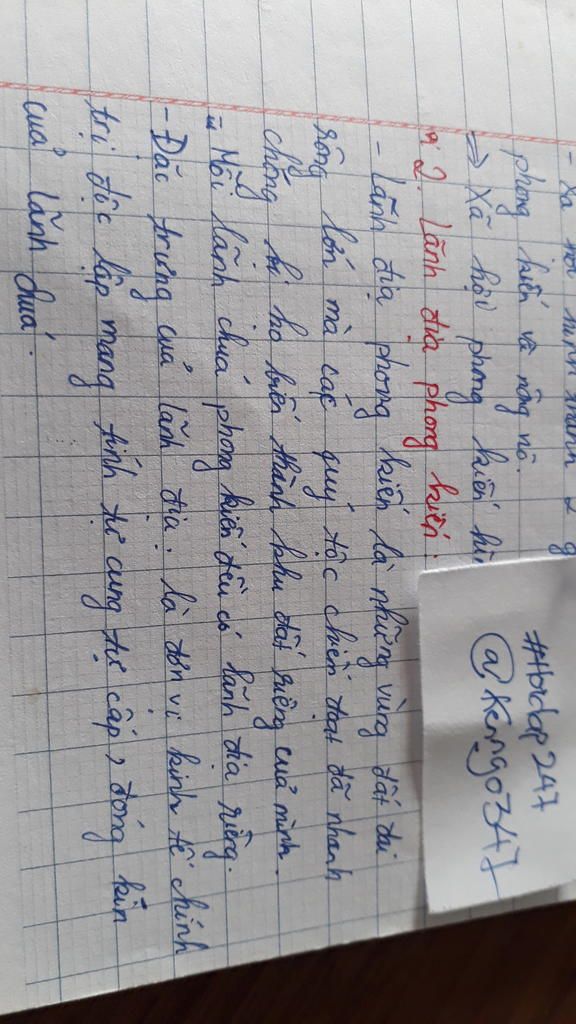 - Xã hội hình thành 2 g
phong kiến và nông nô.
=> Xã hội phong kiến hìn
2. Lãnh địa phong kiến.
- Lãnh địa phong kiến là những vùng đất đai
rộng lớn mà các quý tộc chiếm đoạt đã nhanh
chóng bị họ biến thành khu đất riêng của mình.
- Mỗi lãnh chúa phong kiến đều có lãnh địa riêng.
- Đặc trưng của lãnh địa: là đơn vị kinh tế chính
trị độc lập mang tính tự cung tự cấp, đóng kín
của lãnh chúa.
#Hoidap247
@Kengo347